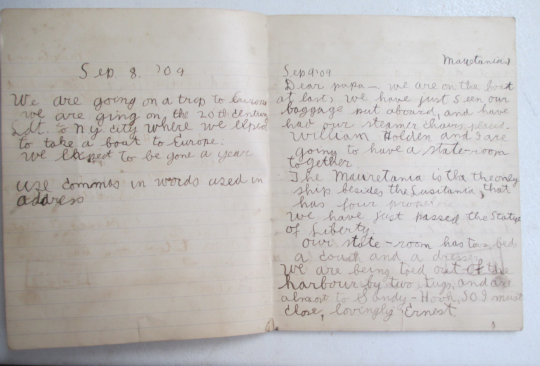 Sep. 8. '09
We are going on a trip to Europe
we are ging on the 20th Century
Lat. to NY city where we expect
to take a boat to Europe.
we expect to be gone a year
use commas in words used in
address
Mauretania
Sep 9 '09
Dear papa— we are on the boat
at last, we have just seen our
baggage put aboard, and have
had our steamer chairs placed.
William Holden and I are
going to have a state-room
together
The Mauretania is the only
ship besides the Lusitania, that
has four
We have just passed the Statue
of Liberty.
Our state-room has two beds
a couch and a dresser.
We are being towed out of the
harbour by two tugs, and are
almost to Sandy-Hook, so I must
close, lovingly Ernest